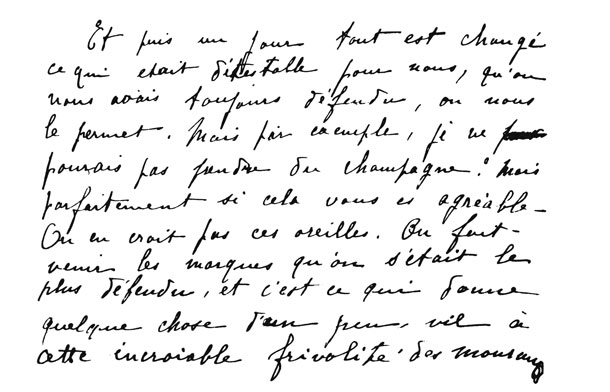 Et puis un jour tout est changé
ce qui etait détestable pour nous, qu'on
nous avais toujours défendu, on nous
le permet. Mais par exemple, je ne
pourais pas prendre du champagne? Mais
parfaitement si cela vous es agréable –
On en croit pas ces oreilles. On fait –
venir les marques qu'on s'était le
plus défendu, et c'est ce qui donne
quelque chose d'un peu vil à
cette incroiable frivolité des mourants